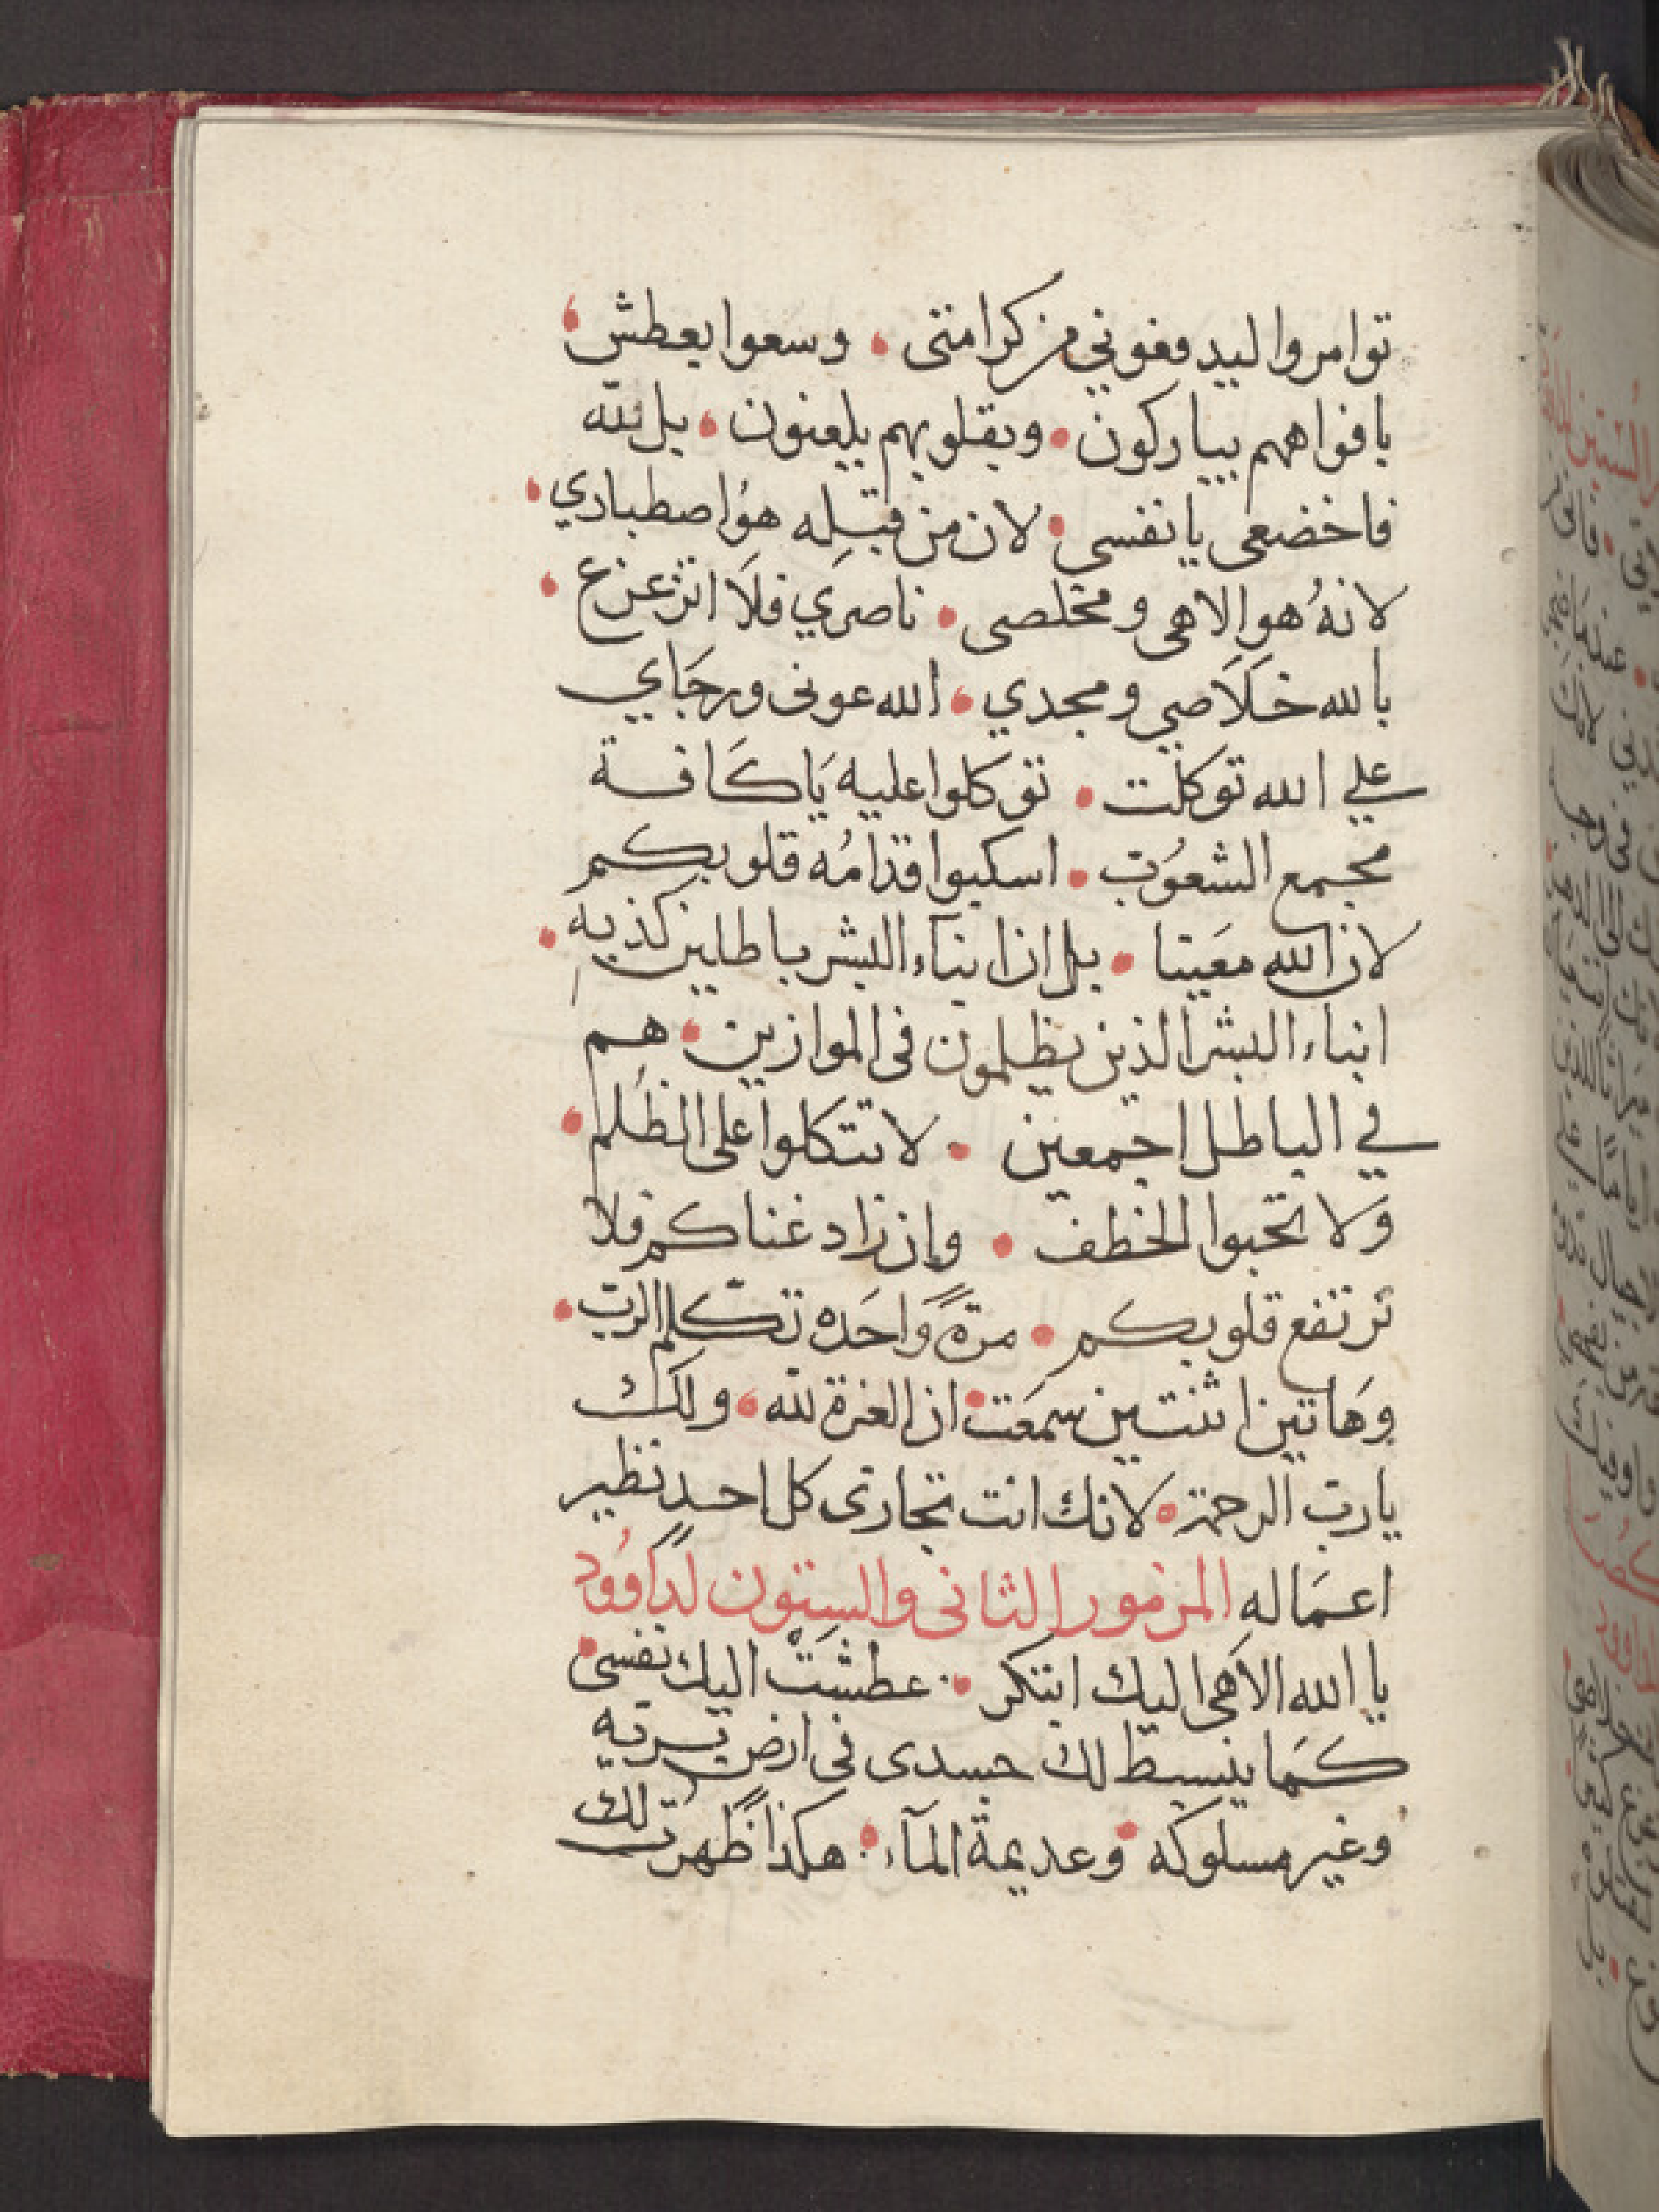 توامروا ليدفعوني من كرامتى • وسعوا بعطش •
بافواههم يباركون • وبقلوبهم يلعنون • بل لله
فاخضعى يا نفسى • لان من قبله هو اصطباري •
لانهُ هو الاهى ومخلصى • ناصرَي فلَا اتزعزع •
بالله خلَاصي ومجدي • الله عونى ورجَاي
علي الله توكلت • توكلوا عليه يَا كَافة
مجمع الشعوُب • اسكبوا قدامُه قلوبكم
لان الله معَيننا • بل ان ابنآء البشر باطلين كذبه •
ابناء البشر الذين يظلمون فى الموازين • هم
في الباطل اجمعين • لا تتكلوا على الظلم •
وَلا تحبوا الخطف • وان زاد غناكم فلا
ترتفع قلوبكم • مرّةً وَاحَده تكلّم الربّ •
وهَاتين اثنتين سمعَت • ان العزة لله • ولكَ
يا ربّ الرحمة • لانك انت تجازى كل احد نظير
اعمَاله المزمور الثانى والستون لدَاوُود
يا الله الاهَى اليك ابتكر • عطشَتْ اليك نفسى •
كمَا ينبسط لك جسدى فى ارض بريه
وغير مسلوكه • وعديمة المآء • هكذا ظهرت لك